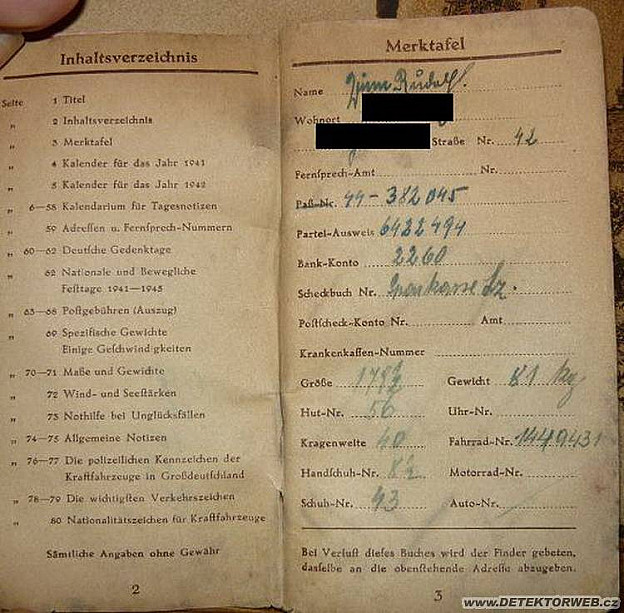 Inhaltsverzeichnis
Seite 1 Titel
„ 2 Inhaltsverzeichnis
„ 3 Merktafel
„ 4 Kalender für das Jahr 1941
„ 5 Kalender für das Jahr 1942
„ 6—58 Kalendarium für Tagesnotizen
„ 59 Adressen u. Fernsprech-Nummern
„ 60—62 Deutsche Gedenktage
„ 62 Nationale und Bewegliche
Festtage 1941—1945
„ 63—68 Postgebühren (Auszug)
„ 69 Spezifische Gewichte
Einige Geschwindigkeiten
„ 70—71 Maße und Gewichte
„ 72 Wind- und Seestärken
„ 73 Nothilfe bei Unglücksfällen
„ 74—75 Allgemeine Notizen
„ 76—77 Die polizeilichen Kennzeichen der
Kraftfahrzeuge in Großdeutschland
„ 78—79 Die wichtigsten Verkehrszeichen
„ 80 Nationalitätszeichen für Kraftfahrzeuge
Sämtliche Angaben ohne Gewähr
2
Merktafel
Name Rudolf
Wohnort
Straße Nr. 42
Fernsprech-Amt Nr.
Paß-Nr. 44-382045
Partei-Ausweis 6422494
Bank-Konto 2260
Scheckbuch Nr. Sparkasse Lz.
Postscheck-Konto Nr. Amt
Krankenkassen-Nummer
Größe 178½ Gewicht 81 kg
Hut-Nr. 56 Uhr-Nr.
Kragenweite 40 Fahrrad-Nr. 1449431
Handschuh-Nr. 8½ Motorrad-Nr.
Schuh-Nr. 43 Auto-Nr.
Bei Verlust dieses Buches wird der Finder gebeten,
dasselbe an die obenstehende Adresse abzugeben.
3
www.DETEKTORWEB.cz